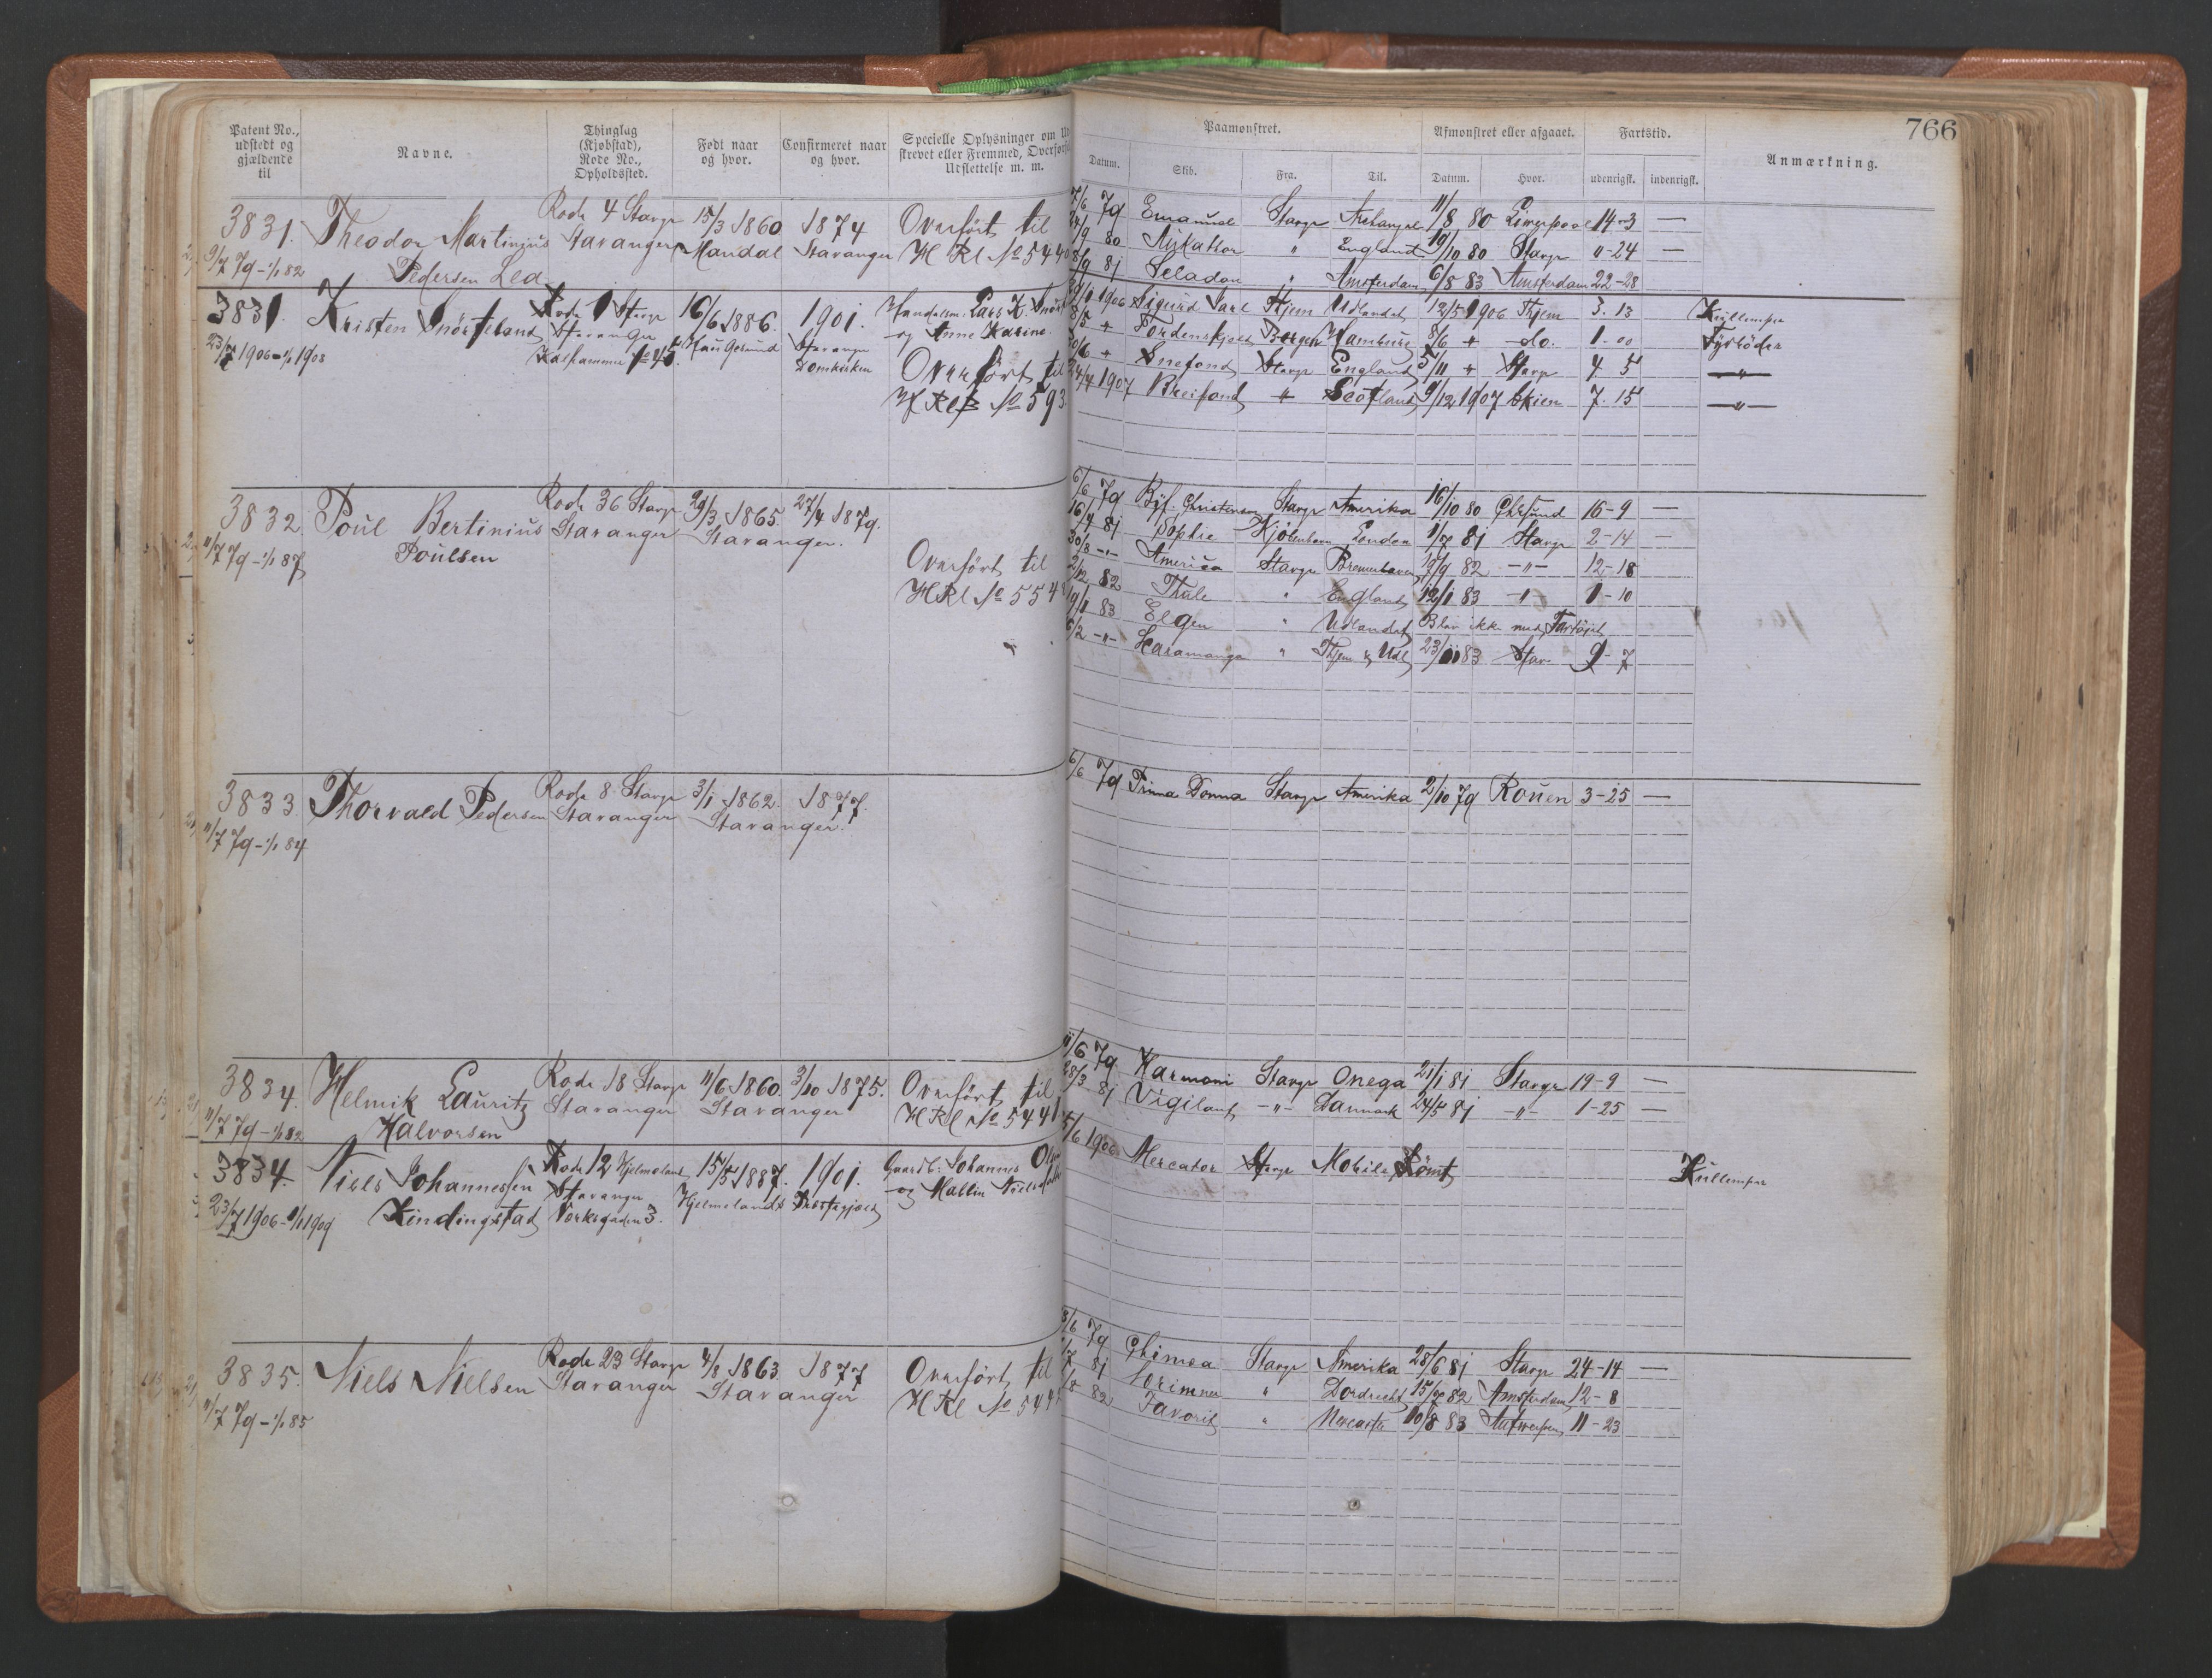 766
Patent No., udstedt og gjældende til
Navne.
Thinglag (Kjøbstad), Rode No., Opholdssted.
Født naar og hvor.
Confirmeret naar og hvor.
Specielle Oplysninger om
skrevet eller Fremmed, Overfør
Udslettelse m. m.
Paamønstret.
Afmønstret eller afgaaet.
Fartstid.
Anmærkning.
Datum. Skib. Fra. Til. Datum. Hvor. udenrigsk. indenrigsk.
3831. Theodor Martinius Rode 4 Stavgr 15/3 1860 1874 Overført til
9/7 79 - 1/1 82 Pedersen Lea Stavanger Mandal Stavanger H Rl No 5440
7/6 79 Emanuel Stavgr Archangel 11/8 80 Liverpool 14-3 —
80 " England 19/10 80 Stavgr "-24 —
81 Seladon " Amsterdam 6/8 83 Amsterdam 22-28
3831. Kristen Snörteland Rode 1 Stavgr 16/6 1886. 1901. Handelsm. Lars K. Snört
23/7 1906 - 1/1 1908 Stavanger Haugesund Stavanger og Anne Karine.
Kalhammer No 45. Domkirken
Overført til
H Rl B No 593.
1906 Sigurd Jarl Hjem Udlandet 12/5 1906 Hjem 3. 13 Kullemper
8/5 " Tordenskjold Bergen Hamburg 8/6 " do. 1. 00 Fyrböder
/6 " Snefond Stavgr England 5/11 " Stavgr 4. 5 — " —
24/4 1907 Breifond " Scotland 9/12 1907 Skien 7. 15 — " —
3832. Poul Bertinius Rode 36 Stavgr 29/3 1865. 27/4 1879.
11/7 79 - 1/1 87 Poulsen Stavanger Stavanger.
Overført til
H Rl No 554
6/6 79 Byf. Christensen Stavgr Amerika 16/10 80 Chrsund 16-9 —
16/4 81 Sophie Kjöbenhavn London 1/7 81 Stavgr 2-14 —
30/8 -"- America Stavgr Bremerhaven 17/9 82 -"- 12-18
2/12 82 Thule " England 12/1 83 " 1-10
19/1 83 Elgen " Udlandet Blev ikke med Fartöjet
6/2 -"- Haramanga " Hjem & Udl 23/11 83 Stav 9-7
3833. Thorvald Pedersen Rode 8 Stavgr 3/1 1862. 1877.
11/7 79 - 1/1 84 Stavanger Stavanger.
6/6 79 Prima Donna Stavgr Amerika 2/10 79 Rouen 3-25 —
3834. Helmik Lauritz Rode 18 Stavgr 11/6 1860. 3/10 1875. Overført til
11/7 79 - 1/1 82 Halvorsen Stavanger Stavanger H Rl No 5441
11/6 79 Harmoni Stavgr Onega 21/1 81 Stavgr 19-9 —
28/3 81 Vigilant -"- Danmark 24/5 81 -"- 1-25 —
3834. Niels Johannessen Rode 12 Hjelmeland 15/5 1887. 1901. Gaardb. Johannes
23/7 1906 - 1/1 1909 Kindingstad Stavanger Hjelmelands Præstegjæld og Mallin
Verksgaden 3.
5/6 1906 Mercator Stavgr Mobile Römt Kullemper
3835. Niels Nielsen Rode 23 Stavgr 4/8 1863 1877 Overført til
11/7 79 - 1/1 85 Stavanger Stavanger H Rl No 544
8/6 79 Chimea Stavgr Amerika 28/6 81 Stavgr 24-14 —
81 " Dordrecht 15/7 82 Amsterdam 12-8
82 Favorit " Newcastle 10/8 83 Antwerpen 11-23